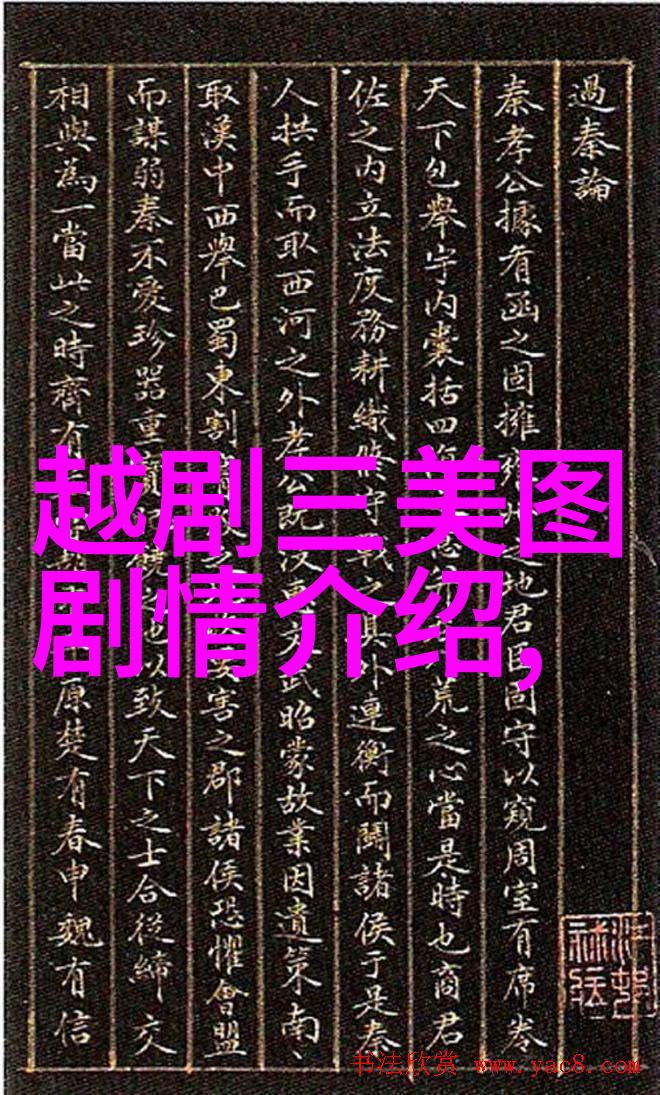 過秦論
秦孝公據有函之固擁之地君臣固守以窺周室有席卷
天下包舉宇内囊括四荒之心當是時也商君
佐之内立法度務耕織修守戰之具外連衡而鬭諸侯于是秦
人拱手而取西河之外孝公既没惠文武昭蒙故業因遺策南、
取漢中西舉巴蜀東割害之郡諸侯恐懼會盟
而謀弱秦不愛珍器重寶之地以致天下之士合從締交
相與為一當此之時齊有原楚有春申魏有信
越剧三美图
剧情介绍,
书法欣赏 www.yac8.com